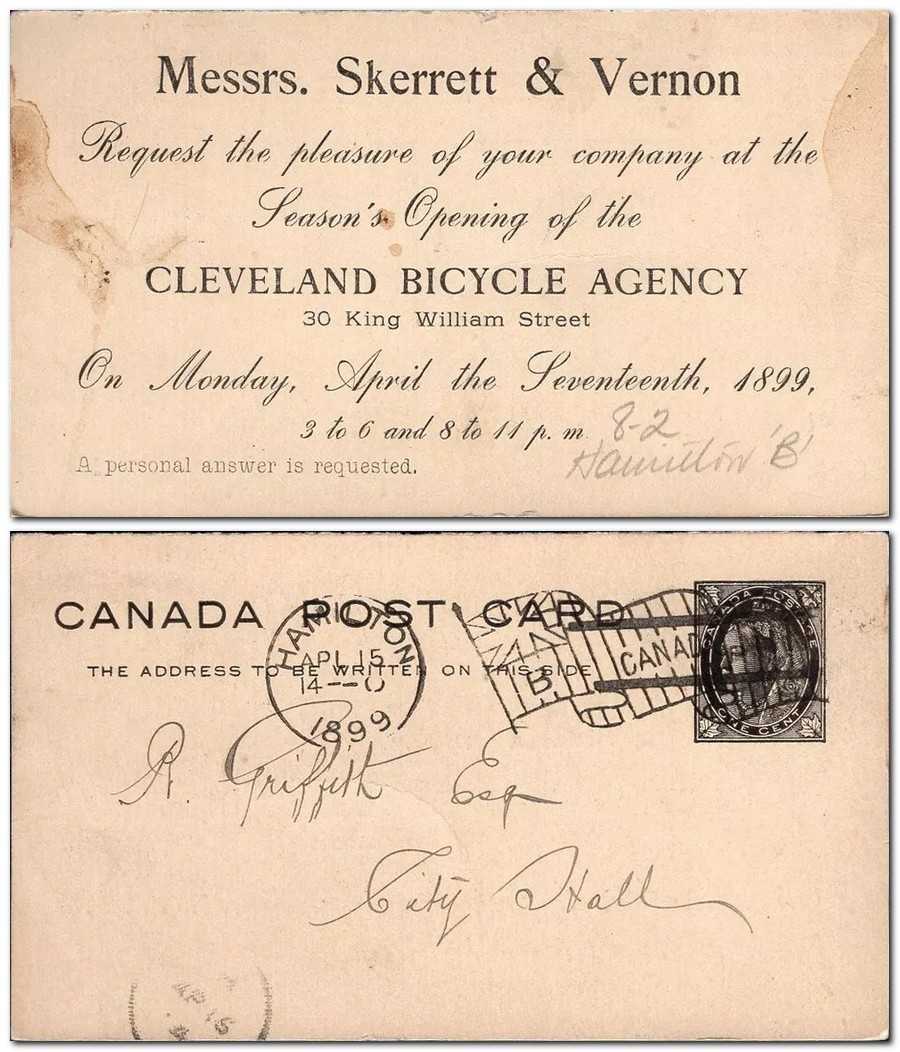 Messrs. Skerrett & Vernon
Request the pleasure of your company at the
Season's Opening of the
CLEVELAND BICYCLE AGENCY
30 King William Street
On Monday, April the Seventeenth, 1899,
3 to 6 and 8 to 11 p. m.
8-2
Hamilton 'B'
A personal answer is requested.
CANADA POST CARD
THE ADDRESS TO BE WRITTEN ON THIS SIDE
HAMILTON
APL 15
14—0
1899
B
CANADA
CANADA POSTAGE
ONE CENT
R. Griffith Esq
City Hall
AP 15